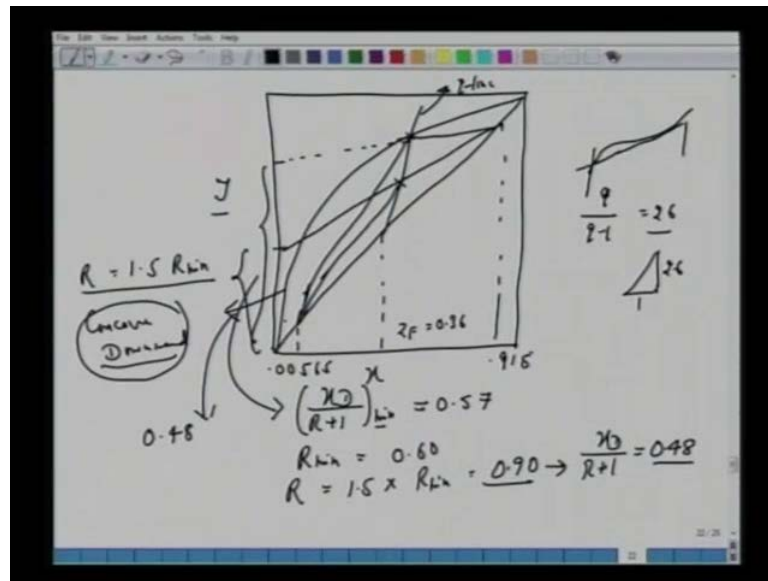 File Edit View Insert Actions Tools Help
q-line
y
q
q-1
= 26
26
1
R = 1.5 Rmin
Concave
Downward
zF = 0.36
.00565
x
.915
0.48
(xD / R+1)min = 0.57
Rmin = 0.60
R = 1.5 x Rmin = 0.90 → xD / R+1 = 0.48
22 / 25
22